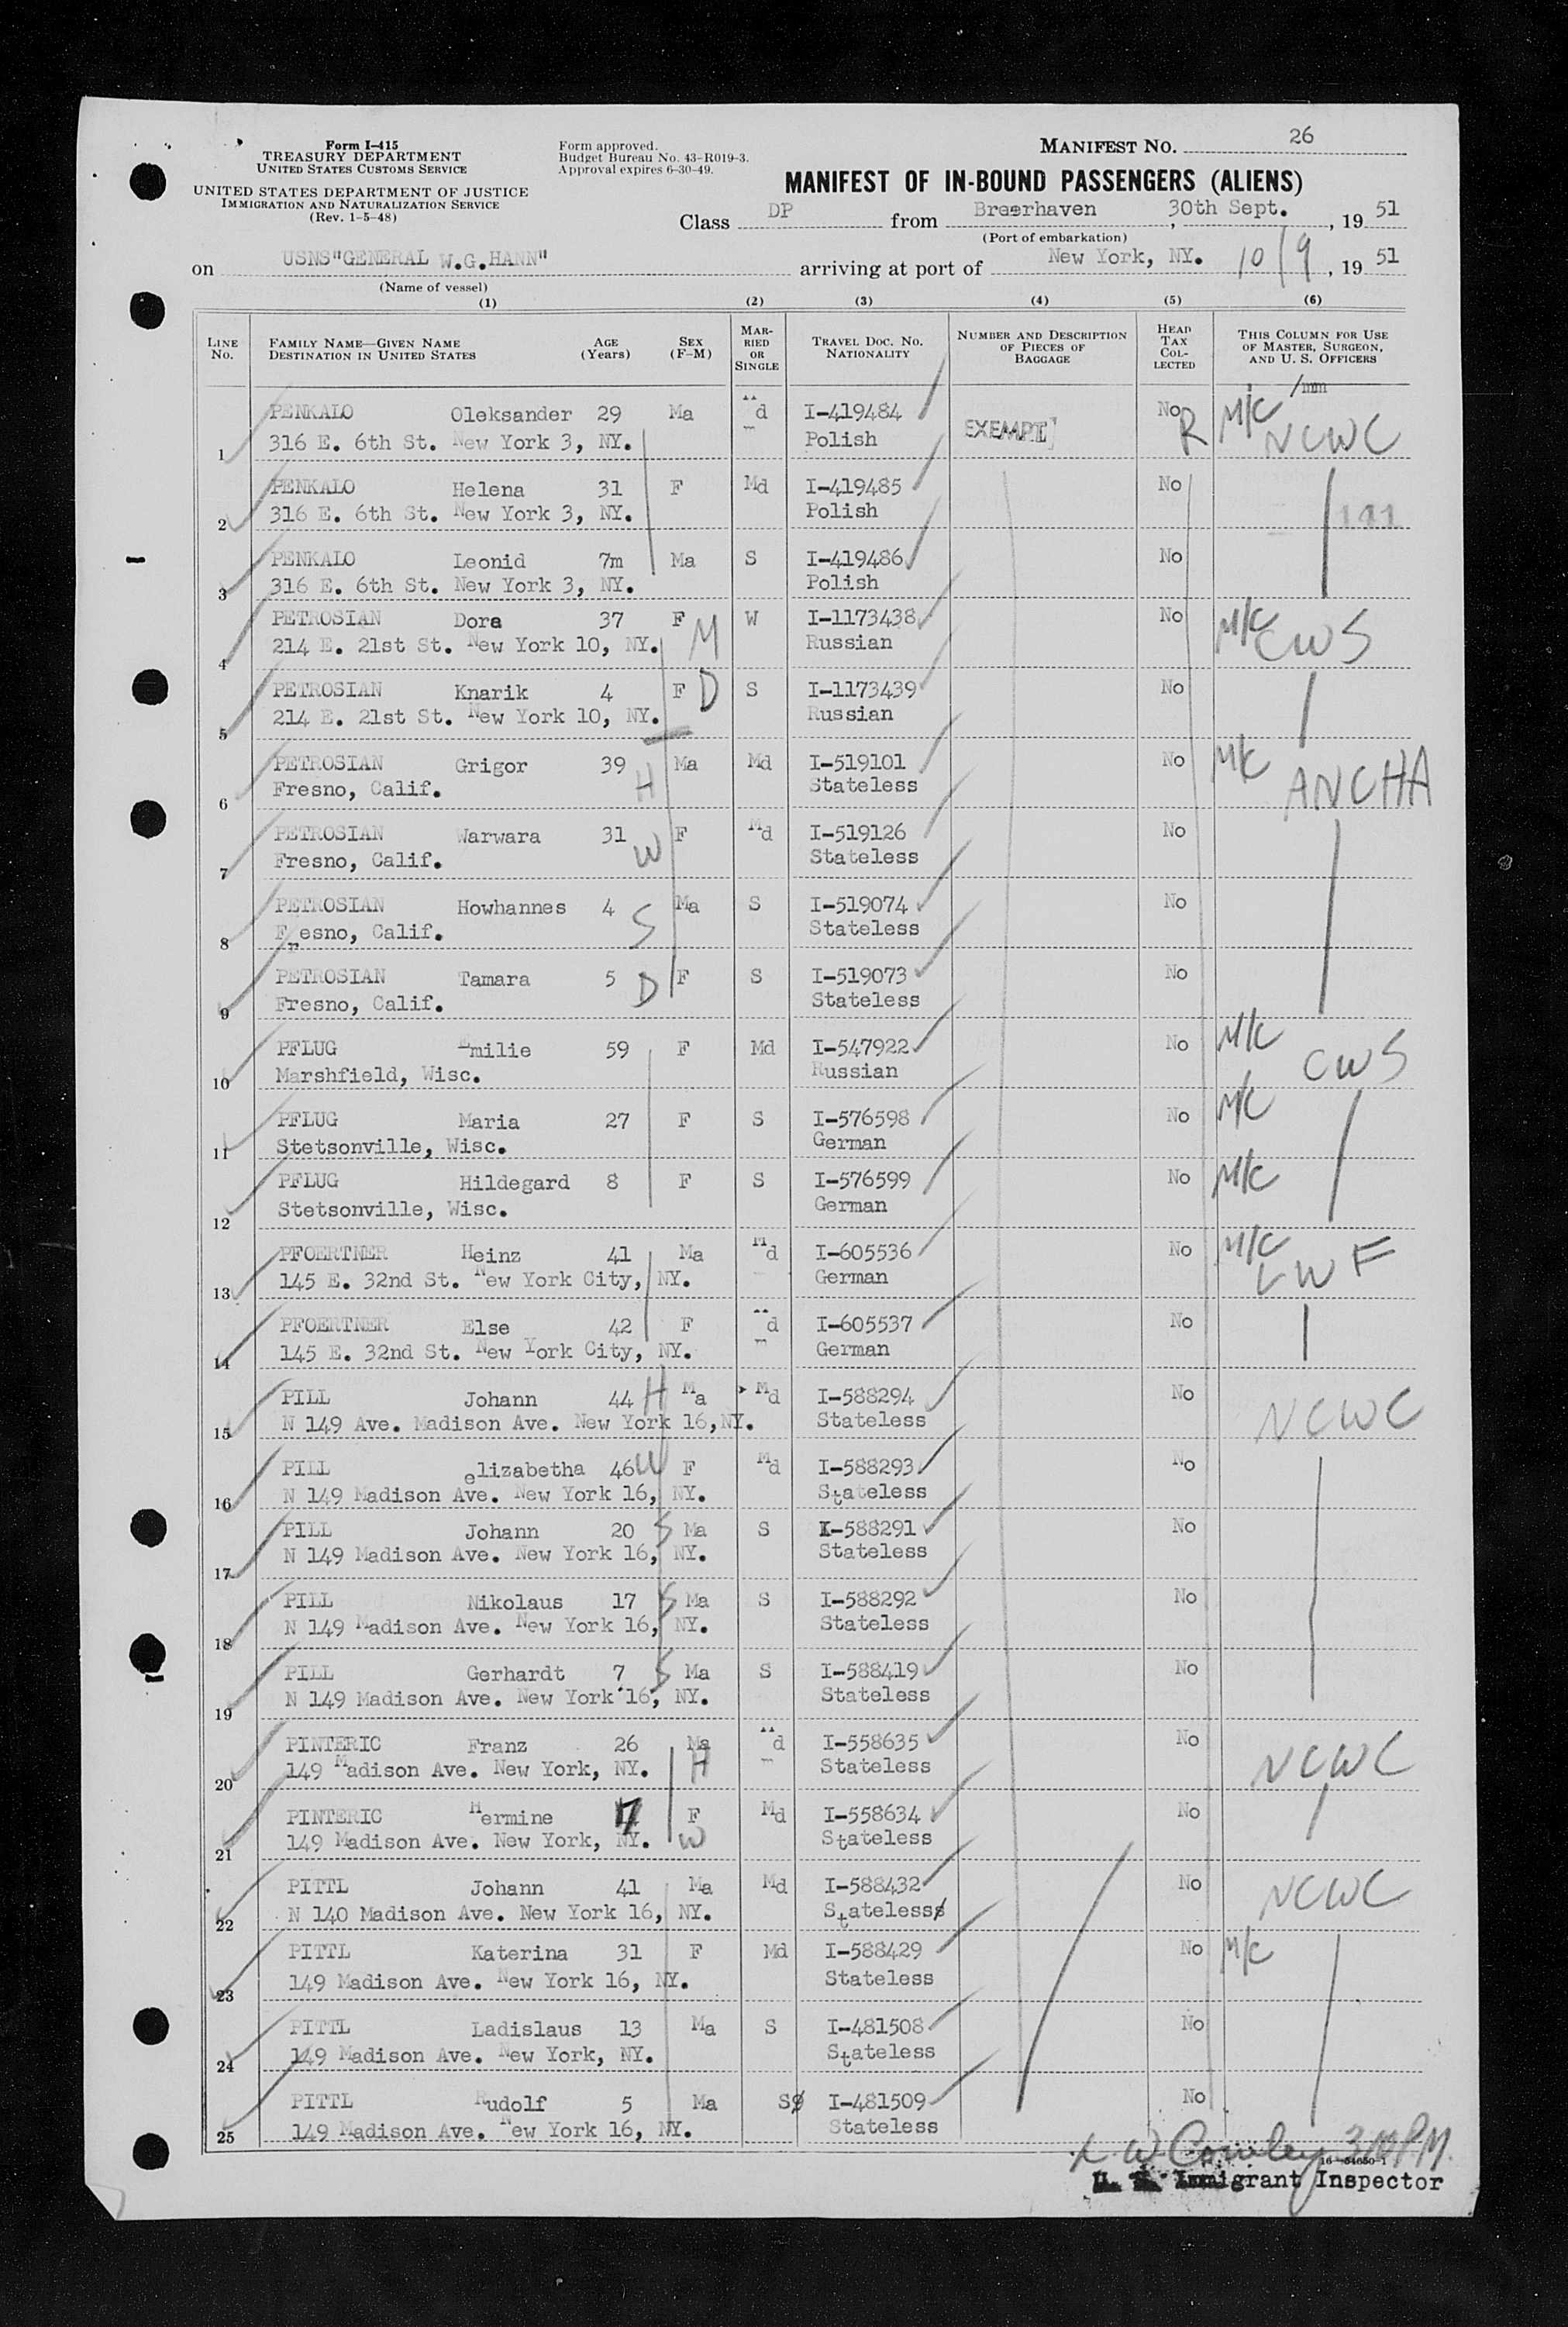 Form I-415
TREASURY DEPARTMENT
UNITED STATES CUSTOMS SERVICE
UNITED STATES DEPARTMENT OF JUSTICE
IMMIGRATION AND NATURALIZATION SERVICE
(Rev. 1-5-48)
Form approved.
Budget Bureau No. 43-R019-3.
Approval expires 6-30-49.
MANIFEST NO. 26
MANIFEST OF IN-BOUND PASSENGERS (ALIENS)
Class DP from Breerhaven, 30th Sept., 19 51
(Port of embarkation)
on USNS"GENERAL W.G.HANN" arriving at port of New York, NY. 10/9, 19 51
(Name of vessel)
(1) (2) (3) (4) (5) (6)
LINE NO. FAMILY NAME—GIVEN NAME DESTINATION IN UNITED STATES AGE (Years) SEX (F-M) MARRIED OR SINGLE TRAVEL DOC. NO. NATIONALITY NUMBER AND DESCRIPTION OF PIECES OF BAGGAGE HEAD TAX COLLECTED THIS COLUMN FOR USE OF MASTER, SURGEON, AND U. S. OFFICERS
/mm
PENKALO Oleksander 29 Ma Md I-419484 EXEMPT No R M/C
1 316 E. 6th St. New York 3, NY. Polish NCWC
PENKALO Helena 31 F Md I-419485 No
2 316 E. 6th St. New York 3, NY. Polish 141
PENKALO Leonid 7m Ma S I-419486 No
3 316 E. 6th St. New York 3, NY. Polish
PETROSIAN Dora 37 F M W I-1173438 No M/C
4 214 E. 21st St. New York 10, NY. Russian CWS
PETROSIAN Knarik 4 F D S I-1173439 No
5 214 E. 21st St. New York 10, NY. Russian
PETROSIAN Grigor 39 H Ma Md I-519101 No M/C
6 Fresno, Calif. Stateless ANCHA
PETROSIAN Warwara 31 W F Md I-519126 No
7 Fresno, Calif. Stateless
PETROSIAN Howhannes 4 S Ma S I-519074 No
8 Fresno, Calif. Stateless
PETROSIAN Tamara 5 D F S I-519073 No
9 Fresno, Calif. Stateless
PFLUG Emilie 59 F Md I-547922 No M/C
10 Marshfield, Wisc. Russian CWS
PFLUG Maria 27 F S I-576598 No M/C
11 Stetsonville, Wisc. German
PFLUG Hildegard 8 F S I-576599 No M/C
12 Stetsonville, Wisc. German
PFOERTNER Heinz 41 Ma Md I-605536 No M/C
13 145 E. 32nd St. New York City, NY. German LWF
PFOERTNER Else 42 F Md I-605537 No
14 145 E. 32nd St. New York City, NY. German
PILL Johann 44 H Ma Md I-588294 No
15 N 149 Ave. Madison Ave. New York 16,NY. Stateless NCWC
PILL elizabetha 46 W F Md I-588293 No
16 N 149 Madison Ave. New York 16, NY. Stateless
PILL Johann 20 S Ma S I-588291 No
17 N 149 Madison Ave. New York 16, NY. Stateless
PILL Nikolaus 17 S Ma S I-588292 No
18 N 149 Madison Ave. New York 16, NY. Stateless
PILL Gerhardt 7 S Ma S I-588419 No
19 N 149 Madison Ave. New York 16, NY. Stateless
PINTERIC Franz 26 Ma Md I-558635 No
20 149 Madison Ave. New York, NY. H Stateless NCWC
PINTERIC Hermine F Md I-558634 No
21 149 Madison Ave. New York, NY. W Stateless
PITTL Johann 41 Ma Md I-588432 No
22 N 140 Madison Ave. New York 16, NY. Stateless NCWC
PITTL Katerina 31 F Md I-588429 No M/C
23 149 Madison Ave. New York 16, NY. Stateless
PITTL Ladislaus 13 Ma S I-481508 No
24 149 Madison Ave. New York, NY. Stateless
PITTL Rudolf 5 Ma S I-481509 No
25 149 Madison Ave. New York 16, NY. Stateless
16—54650-1
U. S. Immigrant Inspector